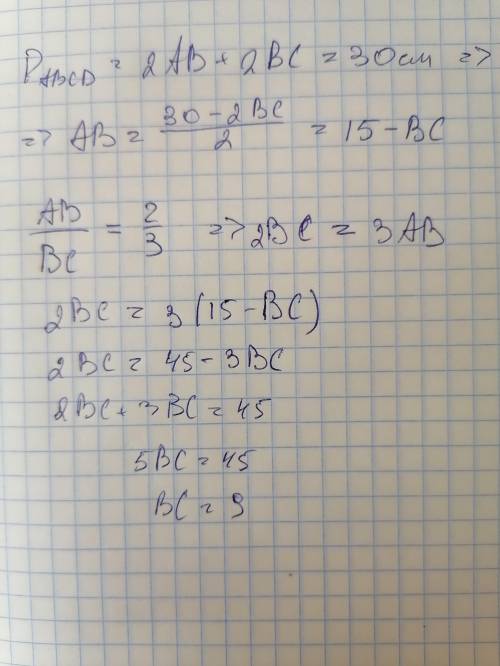 P_ABCD = 2AB + 2BC = 30 см =>
=> AB = (30 - 2BC)/2 = 15 - BC
AB/BC = 2/3 => 2BC = 3AB
2BC = 3(15 - BC)
2BC = 45 - 3BC
2BC + 3BC = 45
5BC = 45
BC = 9